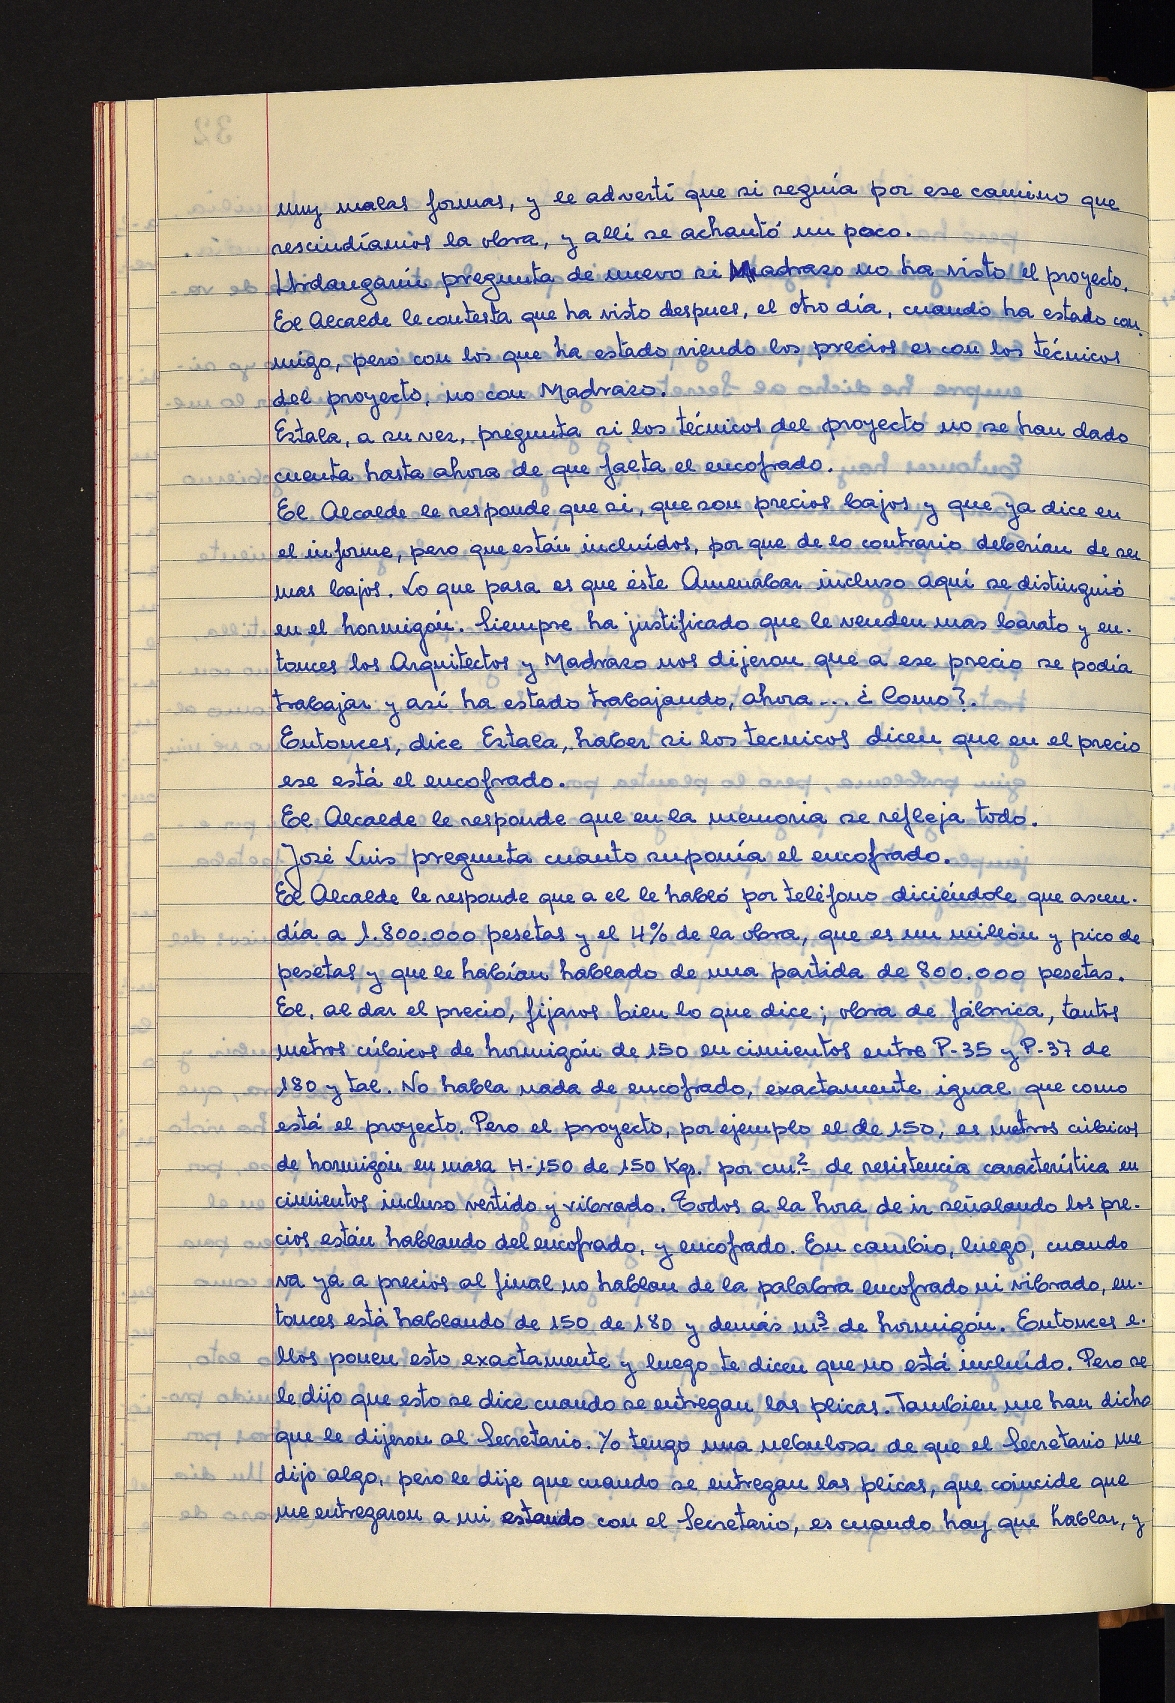 muy malas formas, y le advertí que si seguía por ese camino que
rescindíamos la obra, y allí se achantó un poco.
Urdangarín pregunta de nuevo si Madrazo no ha visto el proyecto.
El Alcalde le contesta que ha visto despues, el otro día, cuando ha estado con-
migo, pero con los que ha estado viendo los precios es con los técnicos
del proyecto, no con Madrazo.
Eztala, a su vez, pregunta si los técnicos del proyecto no se han dado
cuenta hasta ahora de que falta el encofrado.
El Alcalde le responde que si, que son precios bajos y que ya dice en
el informe, pero que están incluídos, por que de lo contrario deberían de ser
mas bajos. Lo que pasa es que éste Amenábar incluso aquí se distinguió
en el hormigón. Siempre ha justificado que le venden mas barato y en-
tonces los Arquitectos y Madrazo nos dijeron que a ese precio se podía
trabajar y así ha estado trabajando, ahora ... ¿ Como?.
Entonces, dice Eztala, haber si los tecnicos dicen que en el precio
ese está el encofrado.
El Alcalde le responde que en la memoria se refleja todo.
José Luis pregunta cuanto suponía el encofrado.
El Alcalde le responde que a el le habló por teléfono diciéndole que ascen-
día a 1.800.000 pesetas y el 4% de la obra, que es un millón y pico de
pesetas y que le habían hablado de una partida de 800.000 pesetas.
El, al dar el precio, fijaros bien lo que dice; obra de fábrica, tantos
metros cúbicos de hormigón de 150 en cimientos entre P-35 y P-37 de
180 y tal. No habla nada de encofrado, exactamente igual que como
está el proyecto. Pero el proyecto, por ejemplo el de 150, es metros cúbicos
de hormigón en masa H-150 de 150 Kgs. por cm² de resistencia característica en
cimientos incluso vertido y vibrado. Todos a la hora de ir señalando los pre-
cios están hablando del encofrado, y encofrado. En cambio, luego, cuando
va ya a precios al final no hablan de la palabra encofrado ni vibrado, en-
tonces está hablando de 150 de 180 y demás m³ de hormigón. Entonces e-
llos ponen esto exactamente y luego te dicen que no está incluído. Pero se
le dijo que esto se dice cuando se entregan las plicas. Tambien me han dicho
que le dijeron al Secretario. Yo tengo una nebulosa de que el Secretario me
dijo algo, pero le dije que cuando se entregan las plicas, que coincide que
me entregaron a mi estando con el Secretario, es cuando hay que hablar, y